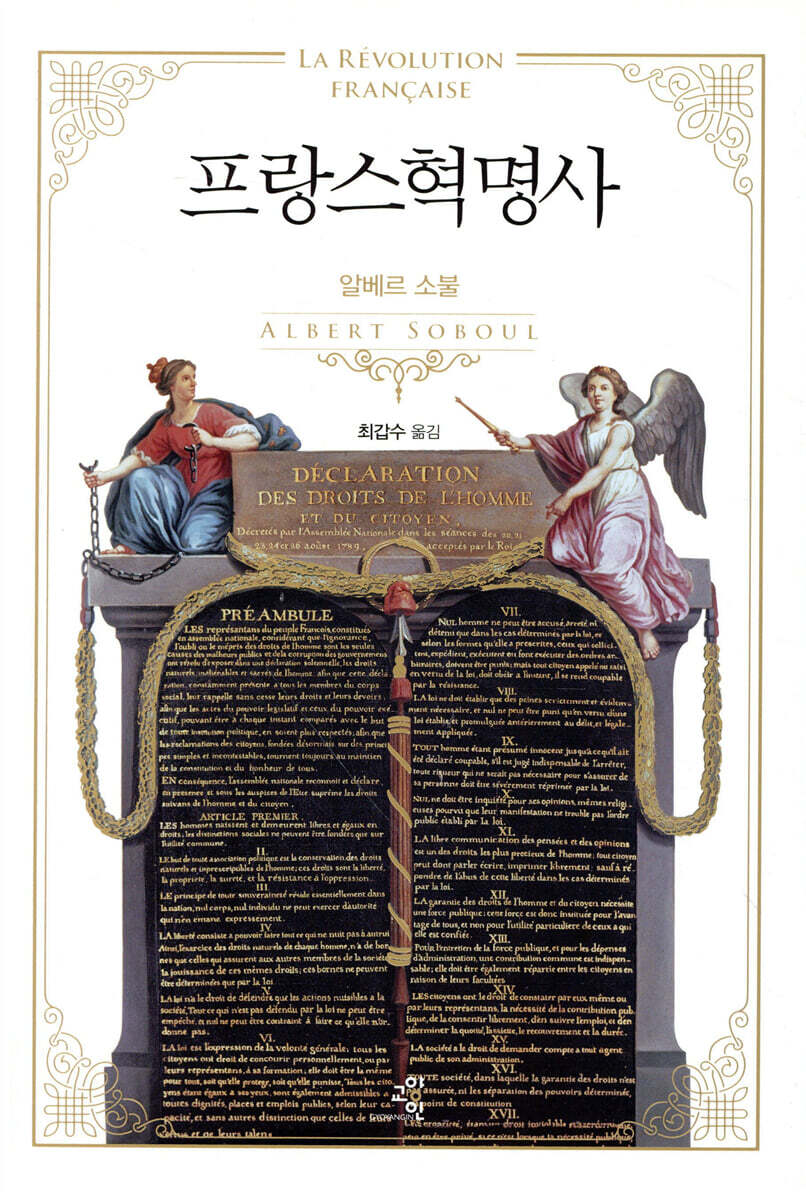 LA RÉVOLUTION
FRANÇAISE
프랑스혁명사
알베르 소불
ALBERT SOBOUL
최갑수 옮김
DÉCLARATION
DES DROITS DE L'HOMME
ET DU CITOYEN,
Décretés par l'Assemblée Nationale dans les séances des 20, 21
23, 24 et 26 août 1789, acceptés par le Roi
PRÉAMBULE
LES représentans du peuple François, constitués
en assemblée nationale, considérant que l'ignorance,
l'oubli ou le mépris des droits de l'homme sont les seules
causes des malheurs publics et de la corruption des gouvernemens
ont résolu d'exposer dans une déclaration solemnelle, les droits
naturels, inaliénables et sacrés de l'homme; afin que cette décla
ration, constamment présente a tous les membres du corps
social, leur rappelle sans cesse leurs droits et leurs devoirs;
afin que les actes du pouvoir législatif et ceux du pouvoir exé
cutif, pouvant être à chaque instant comparés avec le but
de toute institution politique, en soient plus respectés; afin que
les réclamations des citoyens, fondées désormais sur des princi
pes simples et incontestables, tournent toujours au maintien
de la constitution et du bonheur de tous.
EN conséquence, l'assemblée nationale reconnoît et déclare,
en presence et sous les auspices de l'Etre suprême les droits
suivans de l'homme et du citoyen.
ARTICLE PREMIER.
LES hommes naissent et demeurent libres et égaux en
droits; les distinctions sociales ne peuvent être fondées que sur
l'utilité commune.
II.
LE but de toute association politique est la conservation des droits
naturels et imprescriptibles de l'homme; ces droits sont la liberté,
la propriété, la sureté, et la résistance à l'oppression.
III.
LE principe de toute souveraineté réside essentiellement dans
la nation, nul corps, nul individu ne peut exercer d'autorité
qui n'en émane expressément.
IV.
LA liberté consiste a pouvoir faire tout ce qui ne nuit pas à autrui
Ainsi, l'exercice des droits naturels de chaque homme, n'a de bor
nes que celles qui assurent aux autres membres de la société
la jouissance de ces mêmes droits; ces bornes ne peuvent
être déterminées que par la loi.
V.
LA loi n'a le droit de défendre que les actions nuisibles a la
société. Tout ce qui n'est pas défendu par la loi ne peut être
empêché, et nul ne peut être contraint à faire ce qu'elle n'or
donne pas.
VI.
LA loi est l'expression de la volonté générale; tous les
citoyens ont droit de concourir personnellement, ou par
leurs représentans, à sa formation; elle doit être la même
pour tous, soit qu'elle protege, soit qu'elle punisse. Tous les cito
yens étant égaux à ses yeux, sont également admissibles à
toutes dignités, places et emplois publics, selon leur ca
pacité, et sans autres distinction que celles de leurs
vertus et de leurs talens
VII.
NUL homme ne peut être accusé, arreté ni
détenu que dans les cas déterminés par la loi, et
selon les formes qu'elle a prescrites, ceux qui sollici
tent, expédient, exécutent ou font exécuter des ordres ar
bitraires, doivent être punis; mais tout citoyen appelé ou saisi
en vertu de la loi, doit obéir a l'instant, il se rend coupable
par la résistance.
VIII.
LA loi ne doit établir que des peines strictement et évidem
ment nécessaire, et nul ne peut être puni qu'en vertu d'une
loi établie et promulguée antérieurement au délit, et légale
ment appliquée.
IX.
TOUT homme étant présumé innocent jusqu'a ce qu'il ait
été déclaré coupable, s'il est jugé indispensable de l'arrêter,
toute rigueur qui ne serait pas nécessaire pour s'assurer de
sa personne doit être sévèrement réprimée par la loi.
X.
NUL ne doit être inquiété pour ses opinions, mêmes religi
euses pourvu que leur manifestation ne trouble pas l'ordre
public établi par la loi.
XI.
LA libre communication des pensées et des opinions
est un des droits les plus precieux de l'homme; tout citoyen
peut dont parler écrire, imprimer librement; sauf à ré
pondre de l'abus de cette liberté dans les cas déterminés
par la loi.
XII.
LA garantie des droits de l'homme et du citoyen nécessite
une force publique; cette force est donc instituée pour l'avan
tage de tous, et non pour l'utilité particuliere de ceux a qui
elle est confiée.
XIII.
POUR l'entretien de la force publique, et pour les dépenses
d'administration, une contribution commune est indispen
sable; elle doit être également répartie entre les citoyens en
raison de leurs facultés
XIV.
LES citoyens ont le droit de constater par eux même ou
par leurs représentans, la nécessité de la contribution pub
lique, de la consentir librement, d'en suivre l'emploi, et d'en
déterminer la quotité, l'assiette, le recouvrement et la durée.
XV.
LA société a le droit de demander compte a tout agent
public de son administration.
XVI.
TOUTE société, dans laquelle la garantie des droits n'est
pas assurée, ni les séparation des pouvoirs déterminée,
point de constitution
XVII.
교양인
GYOYANGIN